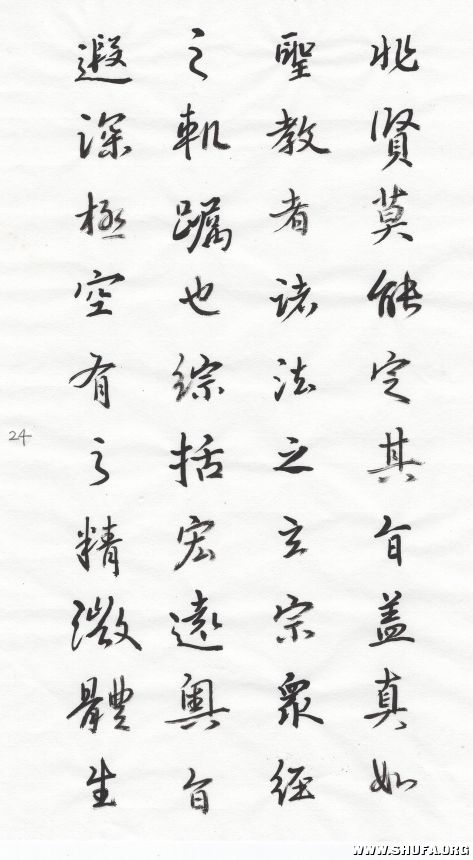 非賢莫能定其旨盖真如
聖教者諸法之玄宗衆經
之軌躅也綜括宏遠奧旨
遐深極空有之精微體生
24
WWW.SHUFA.ORG